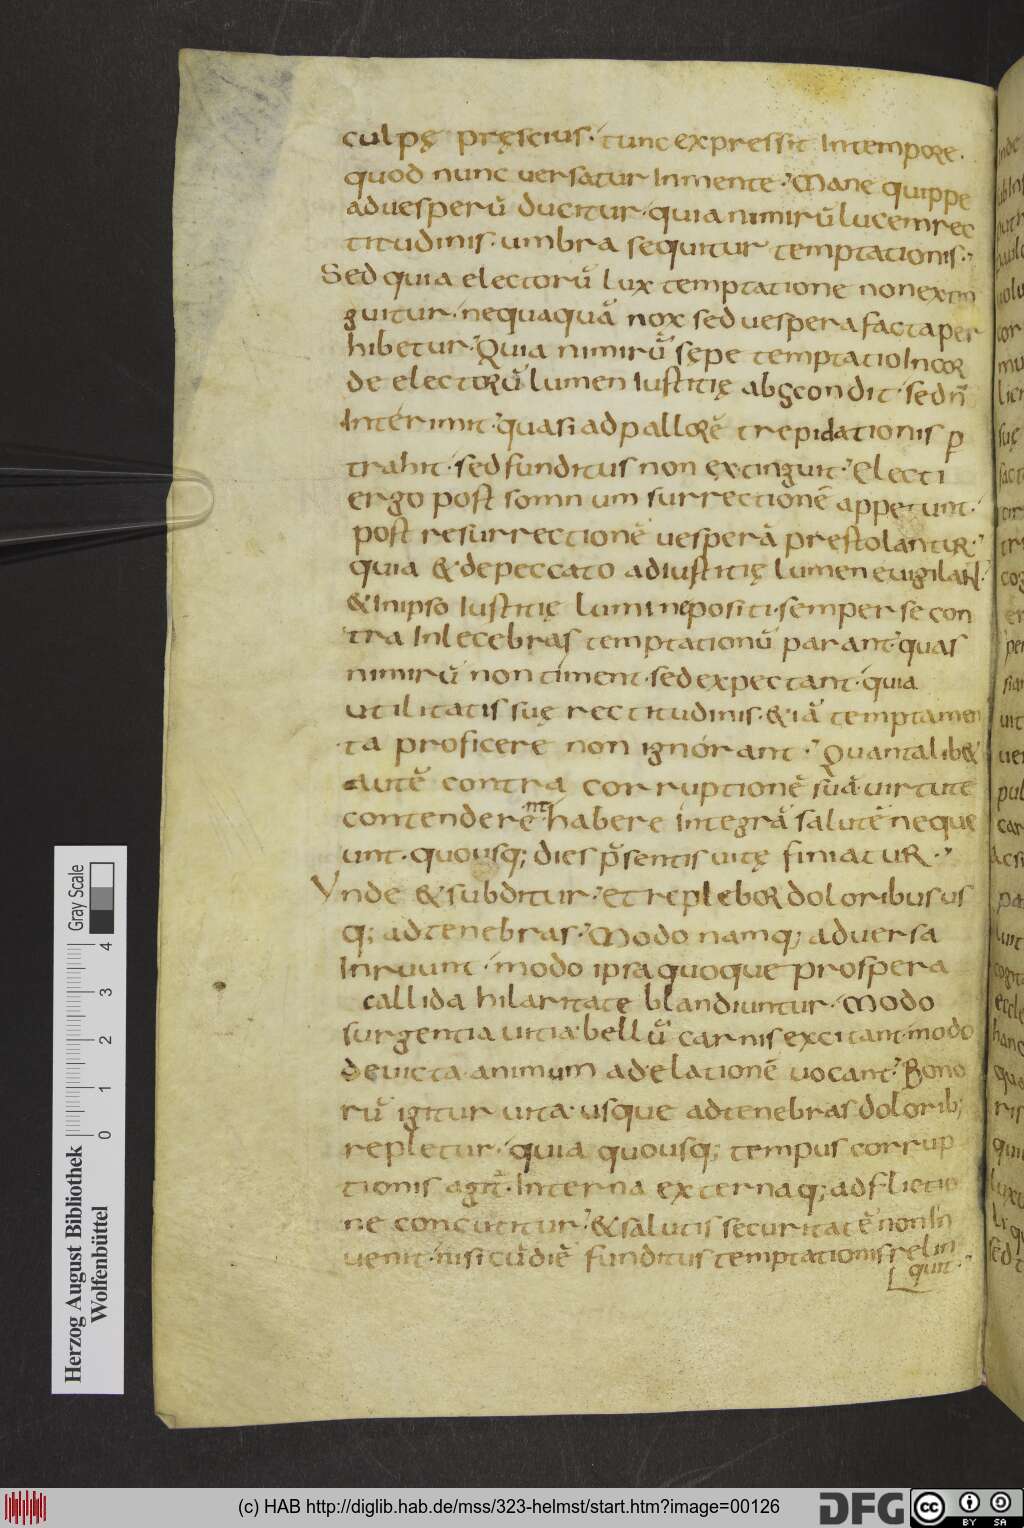 culpę pręscius· tunc expressit Intempore·
quod nunc uersatur Inmente· Mane quippe
aduesperū ducitur· quia nimirū lucem rec
titudinis· umbra sequitur temptationis·
Sed quia electorū lux temptatione non extin
guitur· nequaquā nox sed uespera facta per
hibetur· Quia nimirū sępe temptatio Incor
de electorū lumen Iustitię abscondit· sed n̄
Interimit· quasi ad pallorē trepidationis p
trahit· sed funditus non extinguit· Electi
ergo post somnum surrectionē appetunt·
post resurrectionē uesperā prestolantur·
quia & depeccato adiustitię lumen euigilant·
& Inipso Iustitię lumine positi· semper se con
tra Inlecebras temptationū parant· quas
nimirū non timent· sed expectant· quia
utilitatis suę rectitudinis· & iā temptamen
ta proficere non ignorant· Quantalib&
autē contra corruptionē suā uirtute
contendere nt habere integrā salutē neque
unt· quousq; dies p̄sentis uitę finiatur·
Vnde & subditur· et replebor doloribus us
q; ad tenebras· Modo namq; aduersa
Inruunt· modo ipsa quoque prospera
callida hilaritate blandiuntur· Modo
surgentia uitia· bellū carnis excitant· modo
deuicta animum ad elationē uocant· Bono
rū igitur uita usque adtenebras dolorib;
repletur· quia quousq; tempus corrup
tionis agit̄· Interna externaq; adflictio
ne concutitur· & salutis securitatē non In
uenit· nisi cū diē funditus temptationis relin
quit·
Herzog August Bibliothek
Wolfenbüttel
0 1 2 3 4
Gray Scale
(c) HAB http://diglib.hab.de/mss/323-helmst/start.htm?image=00126
DFG
cc BY SA